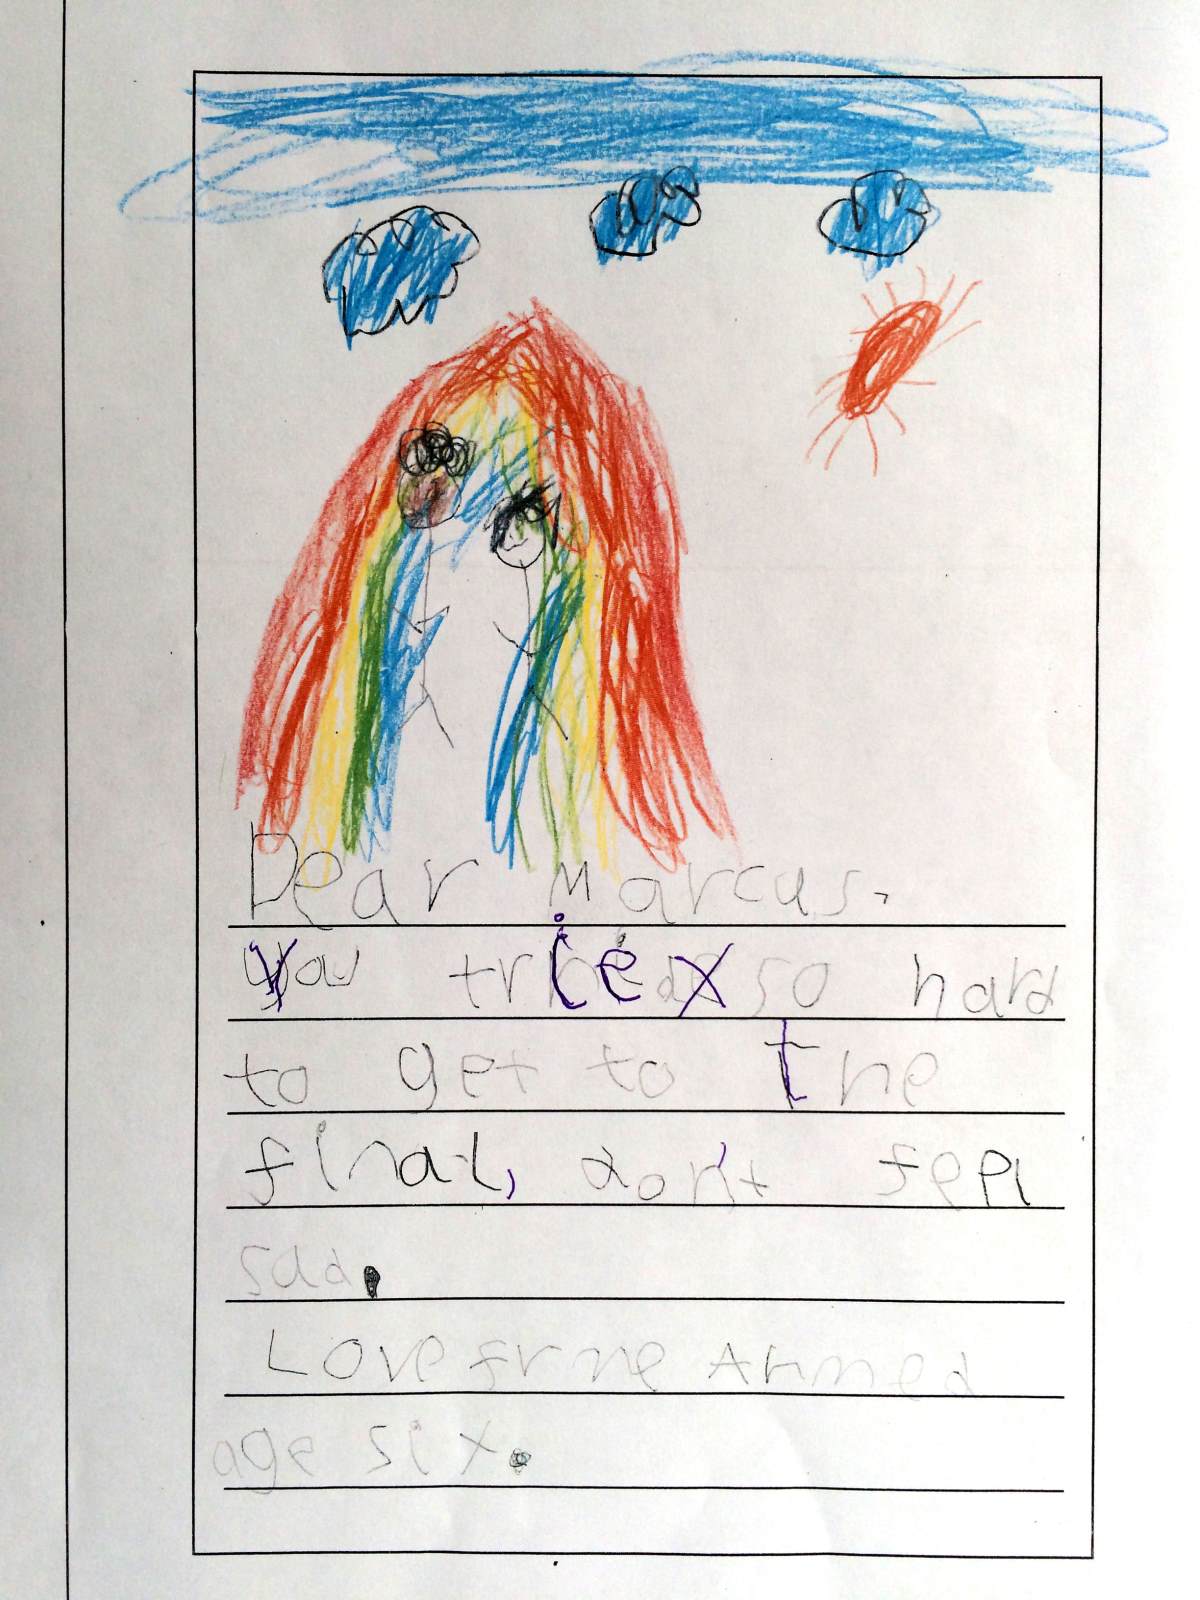 Dear Marcus.
You tried so hard
to get to the
final, don't feel
sad.
Love frme Ahmed
age six.